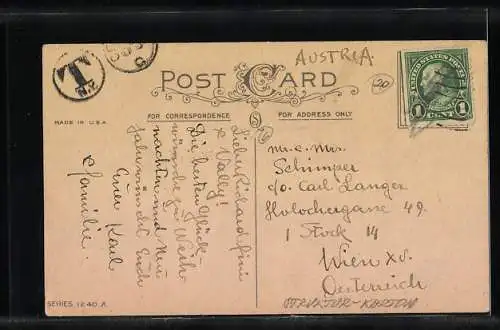 T
N.Z.
AUSTRIA
POST CARD
20
UNITED STATES POSTAGE
1 CENT 1
FOR CORRESPONDENCE
FOR ADDRESS ONLY
MADE IN U.S.A.
Lieber Richard, fini
& Vally!
Die besten Glück-
wünsche zu Weih-
nachten und Neu-
Jahr wünscht Euch
Euer Karl
& Familie.
Mr. & Mrs.
Schimper
c/o. Carl Langer
Holochergane 49.
1 Stock 14
Wien XV.
Oesterreich
SERIES 1240 A